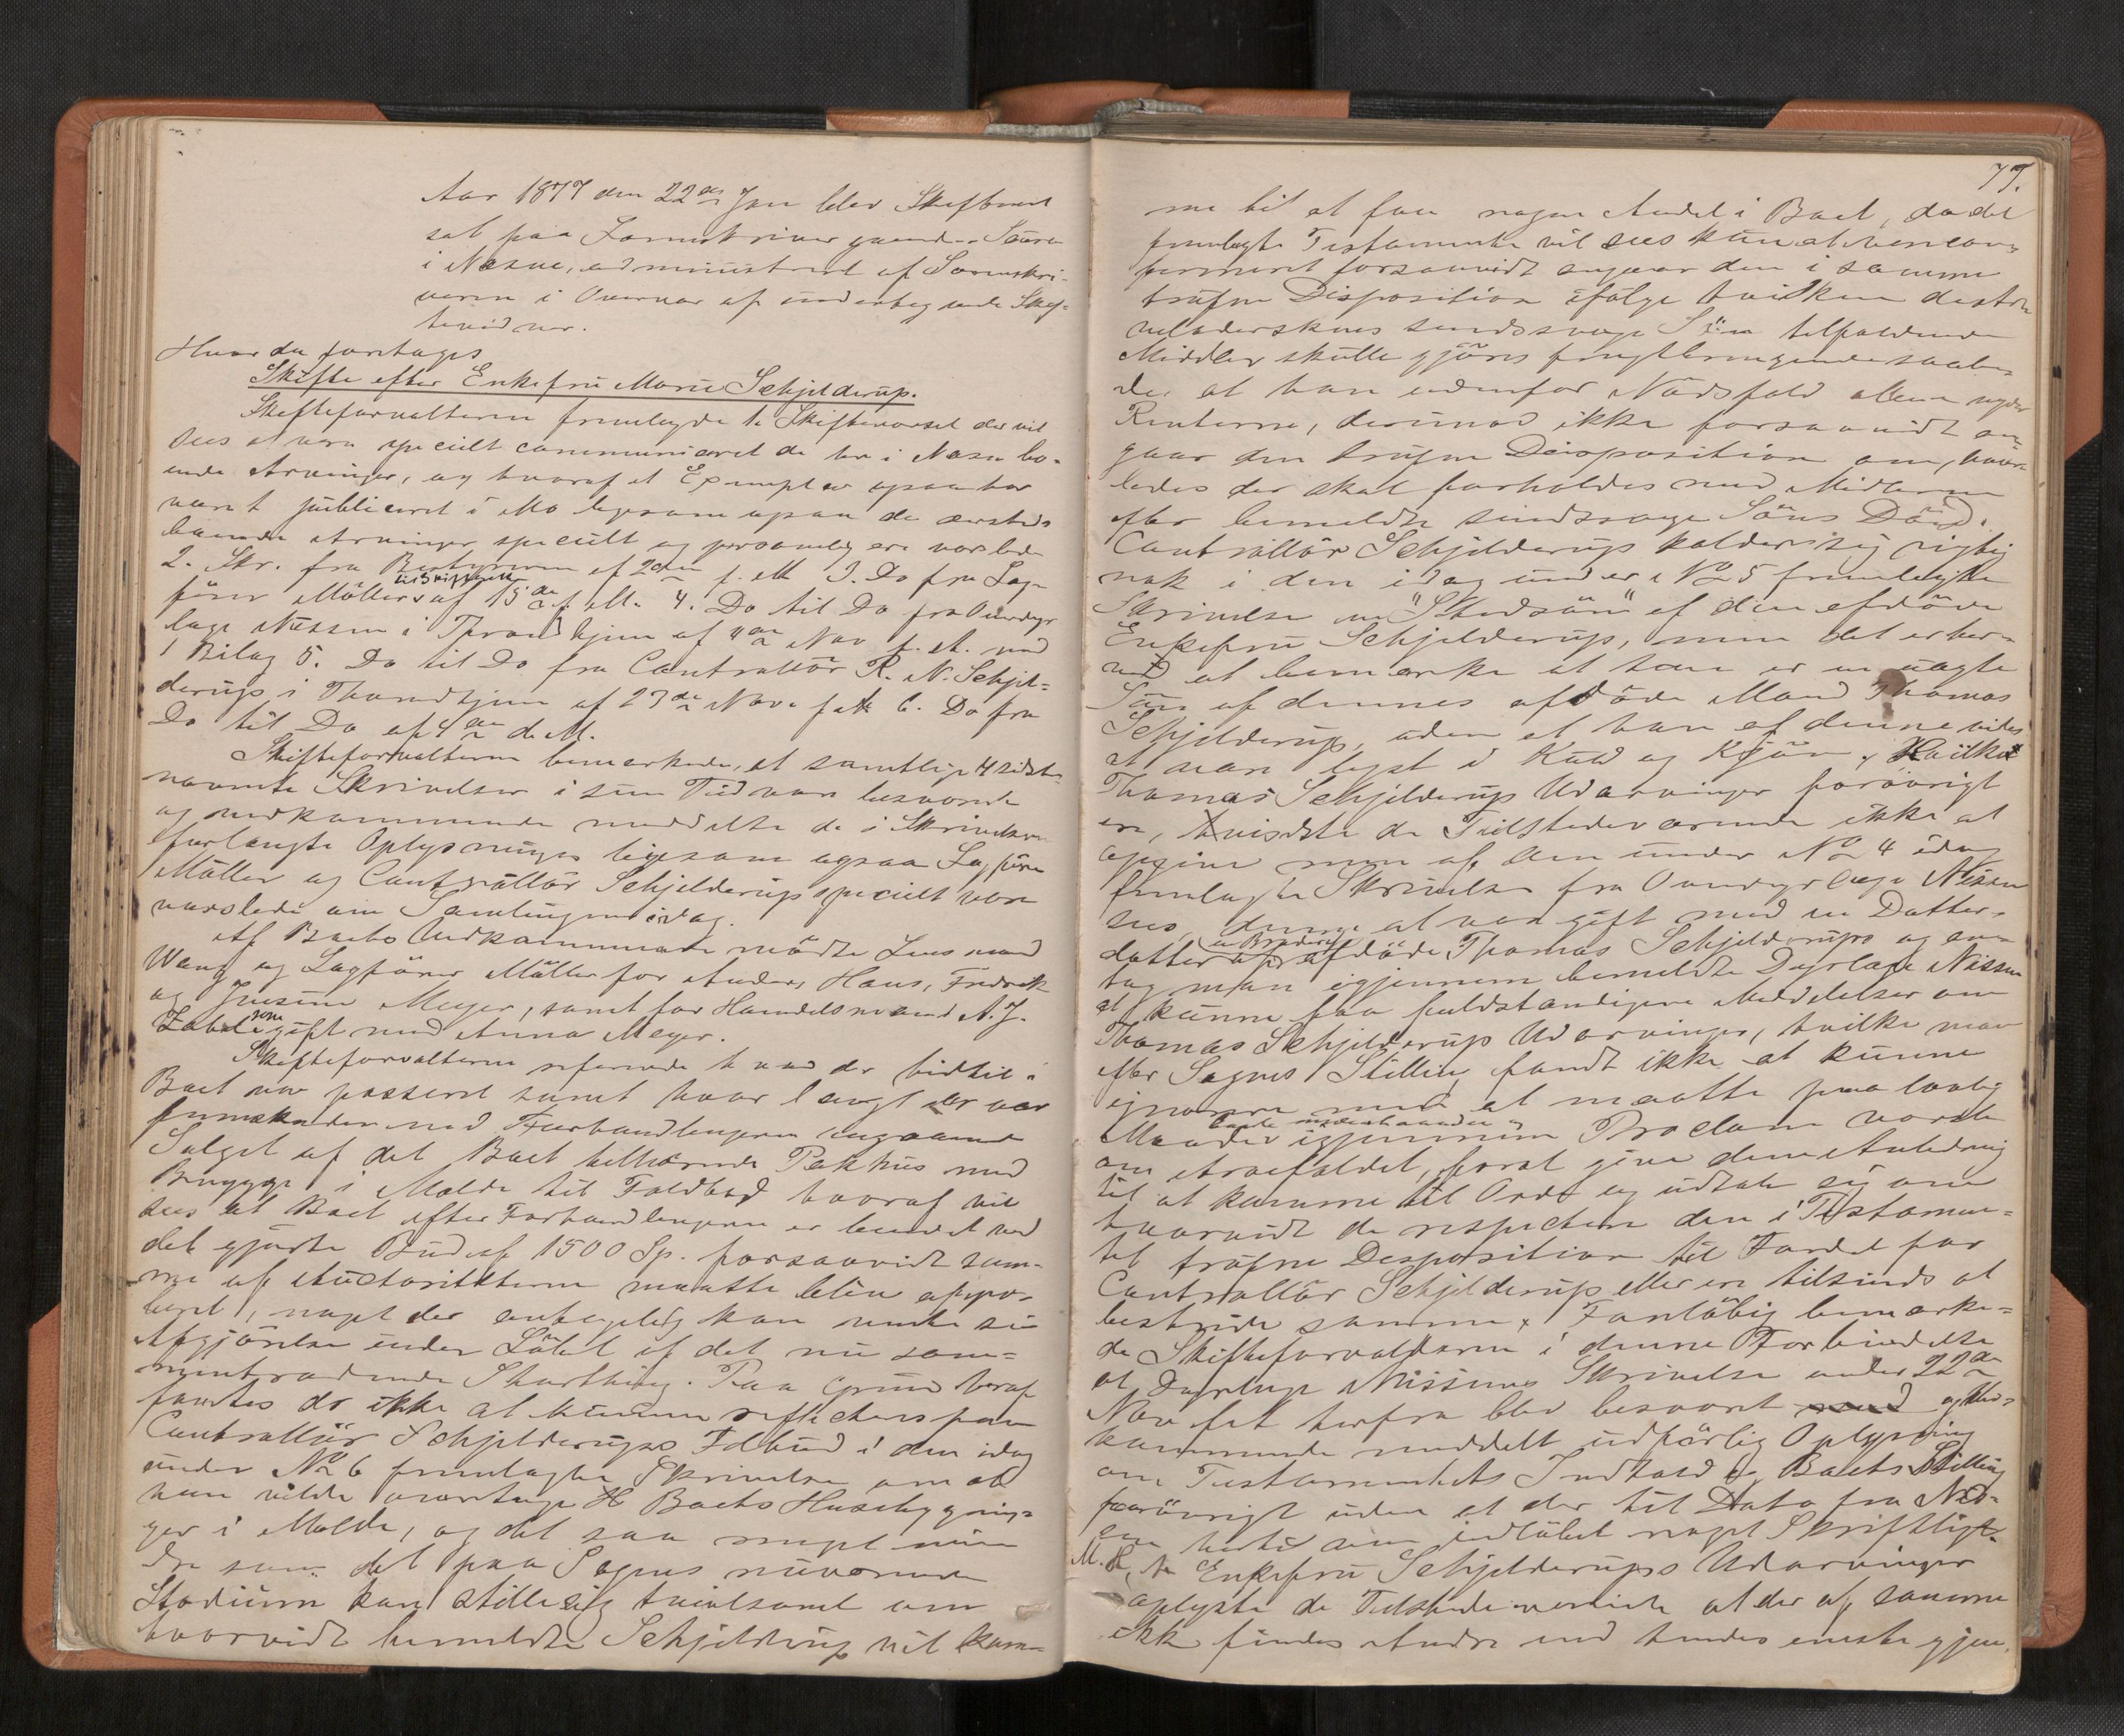 Aar 1877 den 22de Jan blev Skifteret
sat paa Sorenskrivergaarden Søvre
i Næsne, administreret af Sorenskri-
veren i Overvær af undertegnede Skif-
tevidner.
Hvor da foretages
Skifte efter Enkefru Marie Schjelderup.
Skifteforvalteren fremlagde 1. Skiftevarsel der vil
sees at være specielt communiceret de her i Næsne bo-
ende Arvinger, og hvoraf et Exemplar ogsaa har
været publiceret i Mo ligesom ogsaa de dersteds
boende Arvinger specielt og personlig ere varslede
2. Skr. fra Bestyreren af 20de f. M 3. Do fra Sag-
fører Møllers af 15de f. M. 4. Do til Do fra Overdyr-
læge Nissen i Throndhjem af 4de Nov f. A. med
1 Bilag 5. Do til Do fra Controllør R. N. Schjel-
derup i Throndhjem af 23de Nov f A 6. Do fra
Do til Do af 4de d. M.
Skifteforvalteren bemærkede, at samtlige 4 sidst-
nævnte Skrivelser i sin Tid vare besvarede
og vedkommende meddelte de i Skrivelserne
forlangte Oplysninger ligesom ogsaa Sagfører
Møller og Controllør Schjelderup specielt vare
varslede om Samlingen idag.
Af Boets Vedkommende mødte Lensmand
Wang og Sagfører Møller for Anders, Hans, Fredrik
og Meyer, samt for Handelsmand A. J.
Zahl som gift med Anna Meyer.
Skifteforvalteren refererede hvad der hidtil i
Boet var passeret samt hvor langt der var
fremskredet med Forhandlingerne angaaende
Salget af det Boet tilhørende Pakhus med
Brygge i Molde til Toldbod hvoraf vil
sees at Boet efter Forhandlingerne er bundet ved
det gjorte Bud af 1500 Sp. forsaavidt sam-
me af Auctoriteterne maatte blive appro-
beret, noget der antagelig kan vente sin
Afgjørelse under Løbet af det nu sam-
mentrædende Storthing. Paa Grund heraf
fandtes der ikke at kunne reflecteres paa
Controllør Schjelderups Tilbud i den idag
under No 6 fremlagte Skrivelse om at
han vilde overtage Boets Husebygnin-
ger i Molde, og det saa meget min-
dre som det paa Sagens nuværende
Stadium kan stille sig tvivlsomt om
hvorvidt bemeldte Schjelderup vil kom-
77.
me til at faa nogen Andel i Boet, da det
fremlagte Testamente vil sees kun at være con-
firmeret forsaavidt angaaer den i samme
trufne Disposition ifølge hvilken
sindssvage Søn tilfaldende
Midler skulle gjøres frugtbringende saale-
des at han udenfor Nødsfald alene nyder
Renterne, derimod ikke forsaavidt an-
gaar den trufne Disposition om, hvor-
ledes der skal forholdes med Midlerne
efter bemeldte sindssvage Søns Død.
Controllør Schjelderup kalder sig rigtig
nok i den idag under No 5 fremlagte
Skrivelse en "Stedsøn" af den afdøde
Enkefru Schjelderup, men det er her-
ved at bemærke at han er en uægte
Søn af dennes afdøde Mand Thomas
Schjelderup, uden at han af denne vides
at være lyst i Kuld og Kjøn. Hvilke
Thomas Schjelderups Udarvinger forøvrigt
ere, vidste de Tilstedeværende ikke at
opgive men af den under No 4 idag
fremlagte Skrivelse fra Overdyrlæge Nissen
sees denne at være gift med en Datter-
datter af en Broder af afdøde Thomas Schjelderups og an-
tog man igjennem bemeldte Dyrlæge Nissen
at kunne faa fuldstændigere Meddelelser om
Thomas Schjelderups Udarvinger, hvilke man
efter Sagens Stilling fandt ikke at kunne
ignorere med at maatte paa lovlig
Maade igjennem Proclam varsle
om Arvefaldet, forat give dem Anledning
til at komme til Orde og udtale sig om
hvorvidt de respectere den i Testamen-
tet trufne Disposition til Fordel for
Controllør Schjelderup eller ere tilsinds at
bestride samme. Forløbig bemærke-
de Skifteforvalteren i denne Forbindelse
at Dyrlæge Nissens Skrivelse under 22de
Nov f A herfra blev besvaret og Ved-
kommende meddelt udførlig Oplysning
om Testamentets Indhold og Boets Stilling
forøvrigt uden at der til Dato fra
hertil er indløbet noget Skriftligt.
M. H. t. Enkefru Schjelderups Udarvinger
oplyste de Tilstedeværende at der af samme
ikke findes Andre end hendes eneste gjen-